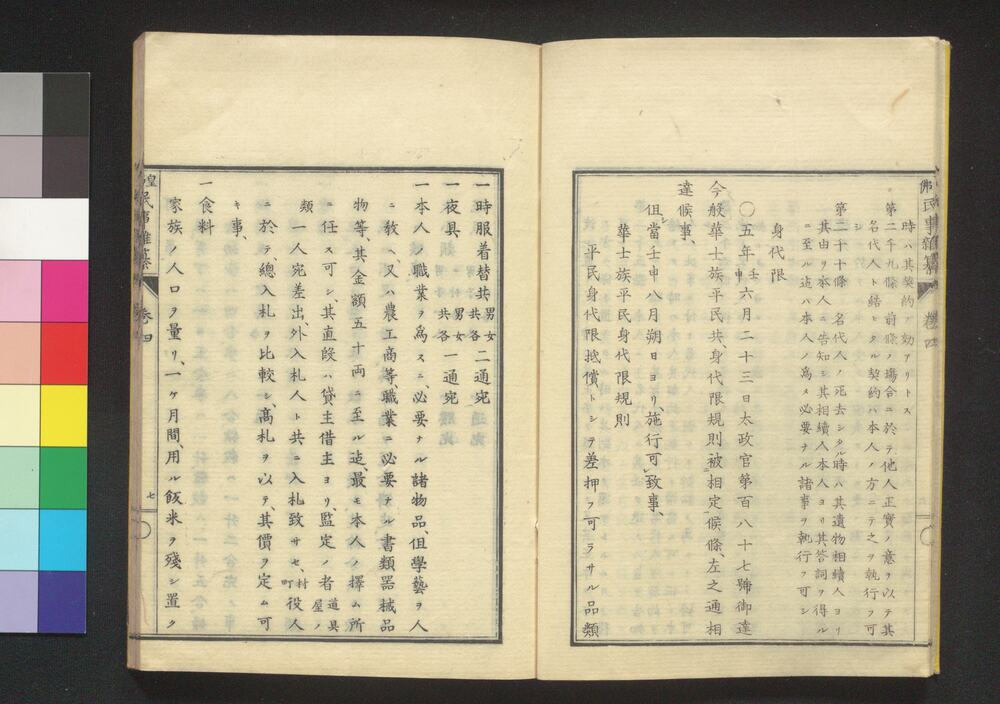 時ハ其契約ノ効アリトス
第二千九條 前條ノ塲合ニ於テ他人正實ノ意ヲ以テ其
名代人ト結ヒタル契約ハ本人ノ方ニテ之ヲ執行フ可
シ
第二千十條 名代人ノ死去シタル時ハ其遺物相續人ヨリ
其由ヲ本人ニ告知シ其相續人本人ヨリ其答詞ヲ得ル
ニ至ル迄ハ本人ノ爲メ必要ナル諸事ヲ執行フ可シ
身代限
〇五年壬申六月二十三日太政官第百八十七號御達
今般華士族平民共、身代限規則被相定候條、左之通相
違候事、
但當壬申八月朔日ヨリ、施行可致事、
華士族平民身代限規則
平民身代限抵償トシテ差押フ可ラサル品類
一時服着替共男女共各二通宛
一夜具男女共各一通宛
一本人ノ職業ヲ爲スニ、必要ナル諸物品、但學藝ヲ人
ニ敎ヘ、又ハ農工商等、職業ニ必要ナル書類器械品
物等、其金額五十兩ニ至ル迄、最モ本人ノ擇ム所
ニ任ス可シ、其直段ハ貸主借主ヨリ、監定ノ者道具屋ノ
類一人宛差出外入札人ト共ニ入札致サセ、村町役人
ニ於テ、總入札ヲ比較シ高札ヲ以テ、其價ヲ定ム可
キ事、
一食料
家族ノ人口ヲ量リ、一ヶ月間、用ル飯米ヲ殘シ置ク
民事雜纂 卷四
七